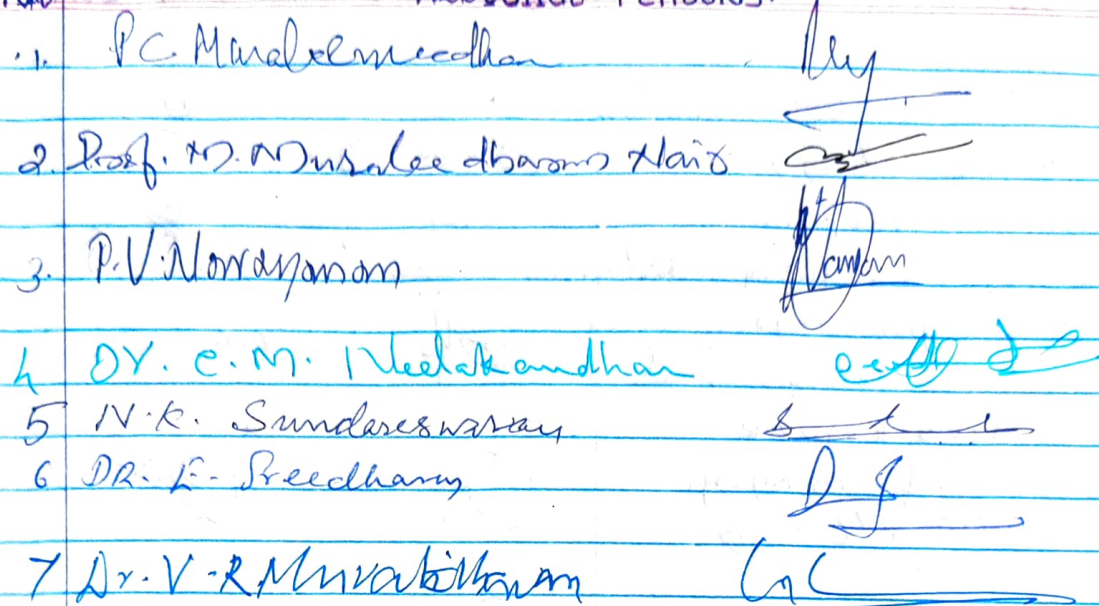 1. P C Muraleemadhavan
2. Prof. M. Muraleedharan Nair
3. P.V. Narayanan
4 Dr. C.M. Neelakandhan
5 N.K. Sundareswaran
6 DR. E. Sreedharan
7 Dr. V.R. Muralidharan